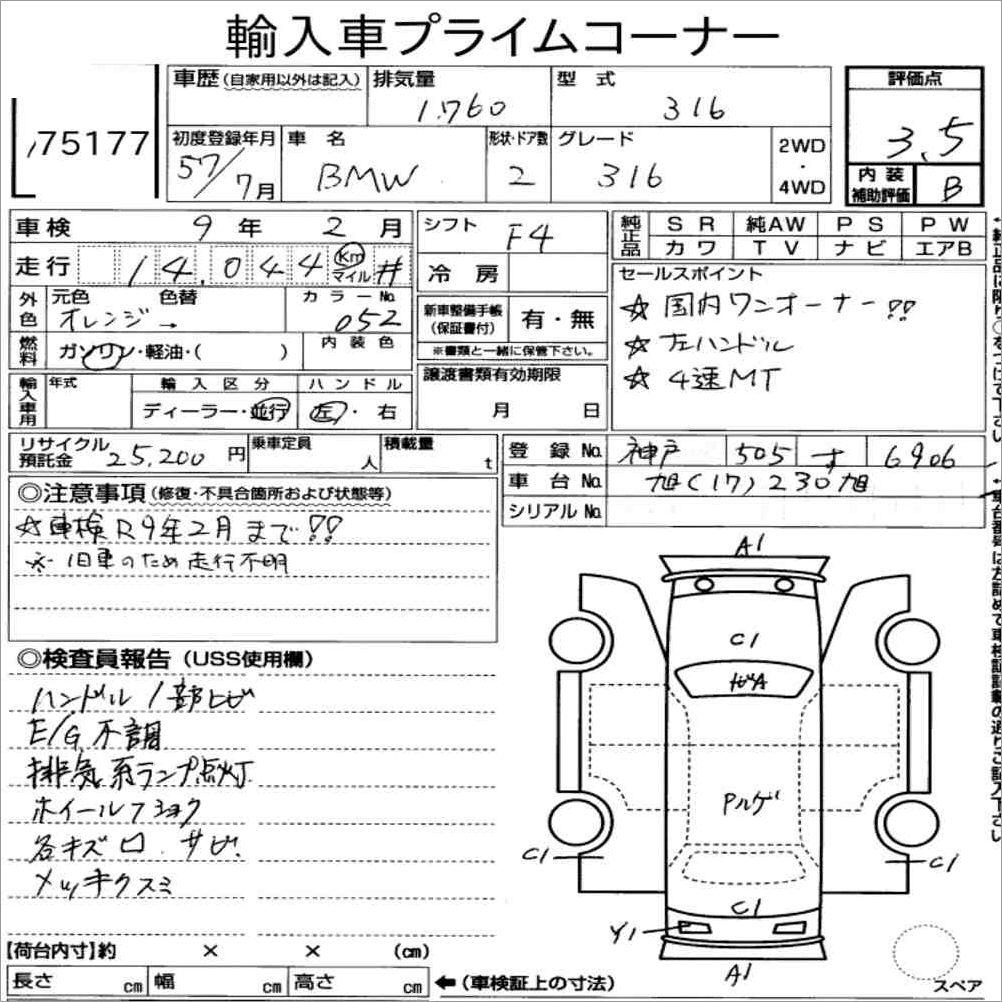 輸入車プライムコーナー
75177
車歴(自家用以外は記入)
排気量 1.760
型式 316
評価点 3.5
初度登録年月 57/7月
車名 BMW
形状・ドア数 2
グレード 316
2WD・4WD
内装補助評価 B
車検 9年 2月
シフト F4
純正品 SR 純AW PS PW
カワ TV ナビ エアB
走行 14,044 Km マイル #
冷房
セールスポイント
☆ 国内ワンオーナー!!
☆ 左ハンドル
☆ 4速MT
外色 元色 色替 カラーNo.
オレンジ → 052
新車整備手帳(保証書付) 有・無
※書類と一緒に保管下さい。
燃料 ガソリン・軽油・( ) 内装色
輸入車用 年式 輸入区分 ハンドル
ディーラー・並行 左・右
譲渡書類有効期限
月 日
リサイクル預託金 25,200円
乗車定員 人
積載量 t
登録No. 神戸 505 す 6906
車台No. 旭(17)230旭
シリアルNo.
◎注意事項(修復・不具合箇所および状態等)
☆車検R9年2月まで!!
※旧車のため走行不明
◎検査員報告(USS使用欄)
ハンドル1部ヒビ
E/G不調
排気系ランプ点灯
ホイールフショク
各キズ凹 サビ
メッキクスミ
A1
C1
Pルゲ
C1
C1
C1
Y1
A1
【荷台内寸】約 × × (cm)
長さ cm 幅 cm 高さ cm
←(車検証上の寸法)
スペア